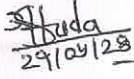 Huda
29/04/28